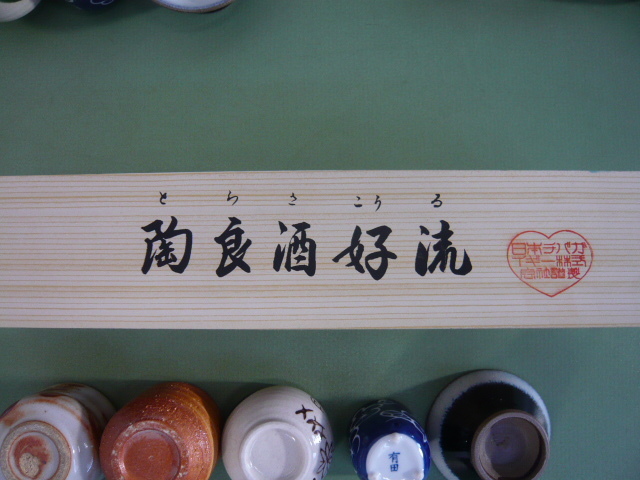 と ら さ こう る
陶良酒好流
有田